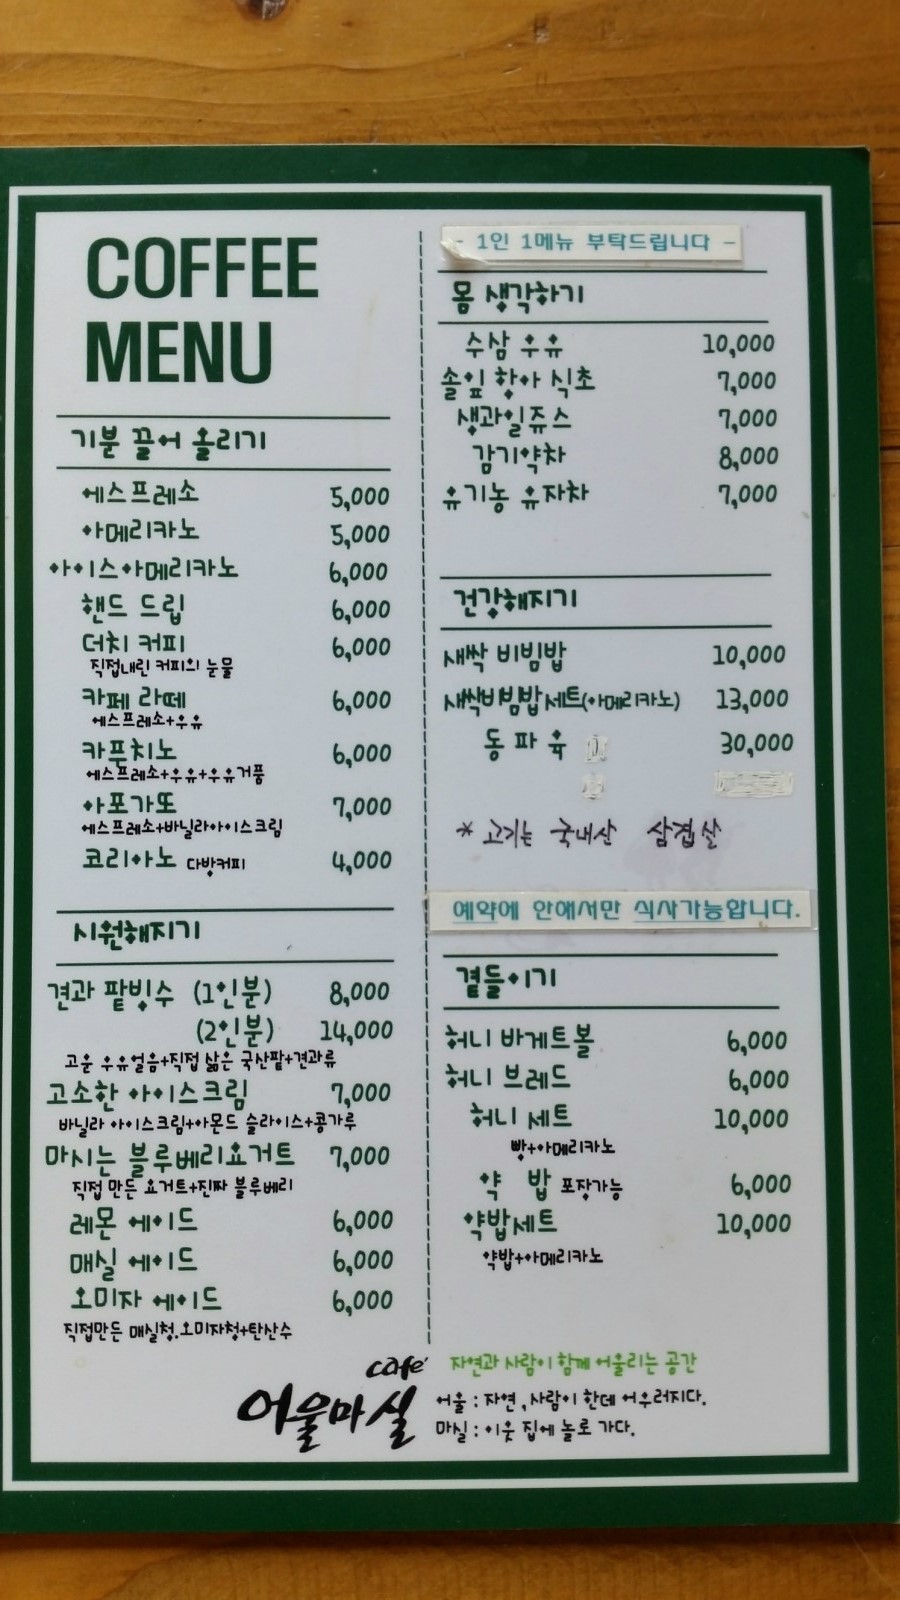 COFFEE
MENU
기분 끌어 올리기
에스프레소 5,000
아메리카노 5,000
아이스아메리카노 6,000
핸드 드립 6,000
더치 커피 6,000
직접내린 커피의 눈물
카페 라떼 6,000
에스프레소+우유
카푸치노 6,000
에스프레소+우유+우유거품
아포가또 7,000
에스프레소+바닐라아이스크림
코리아노 다방커피 4,000
시원해지기
견과 팥빙수 (1인분) 8,000
(2인분) 14,000
고운 우유얼음+직접 삶은 국산팥+견과류
고소한 아이스크림 7,000
바닐라 아이스크림+아몬드 슬라이스+콩가루
마시는 블루베리요거트 7,000
직접 만든 요거트+진짜 블루베리
레몬 에이드 6,000
매실 에이드 6,000
오미자 에이드 6,000
직접만든 매실청.오미자청+탄산수
- 1인 1메뉴 부탁드립니다 -
몸 생각하기
수삼 우유 10,000
솔잎 항아 식초 7,000
생과일쥬스 7,000
감기약차 8,000
유기농 유자차 7,000
건강해지기
새싹 비빔밥 10,000
새싹비빔밥세트(아메리카노) 13,000
동 파 육 30,000
* 고기는 국내산 삼겹살
예약에 안에서만 식사가능합니다.
곁들이기
허니 바게트볼 6,000
허니 브레드 6,000
허니 세트 10,000
빵+아메리카노
약 밥 포장가능 6,000
약밥세트 10,000
약밥+아메리카노
café
어울마실
자연과 사람이 함께 어울리는 공간
어울 : 자연, 사람이 한데 어우러지다.
마실 : 이웃 집에 놀로 가다.